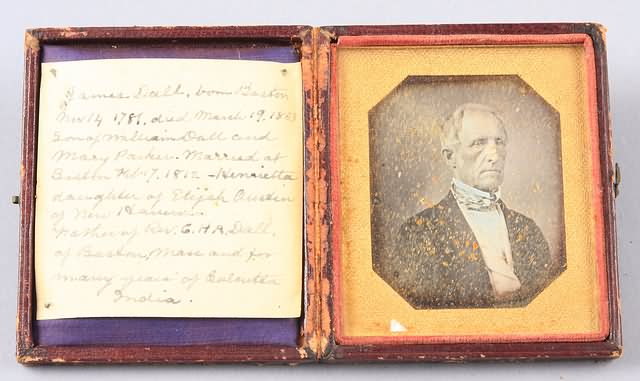 James Dall, born Boston
Nov 14 1781, died March 19, 1863
Son of William Dall and
Mary Parker. Married at
Boston Feb 17, 1812 - Henrietta
daughter of Elijah Austin
of New Haven.
Father of Rev. C. H. A. Dall,
of Boston, Mass and for
many years of Calcutta
India.